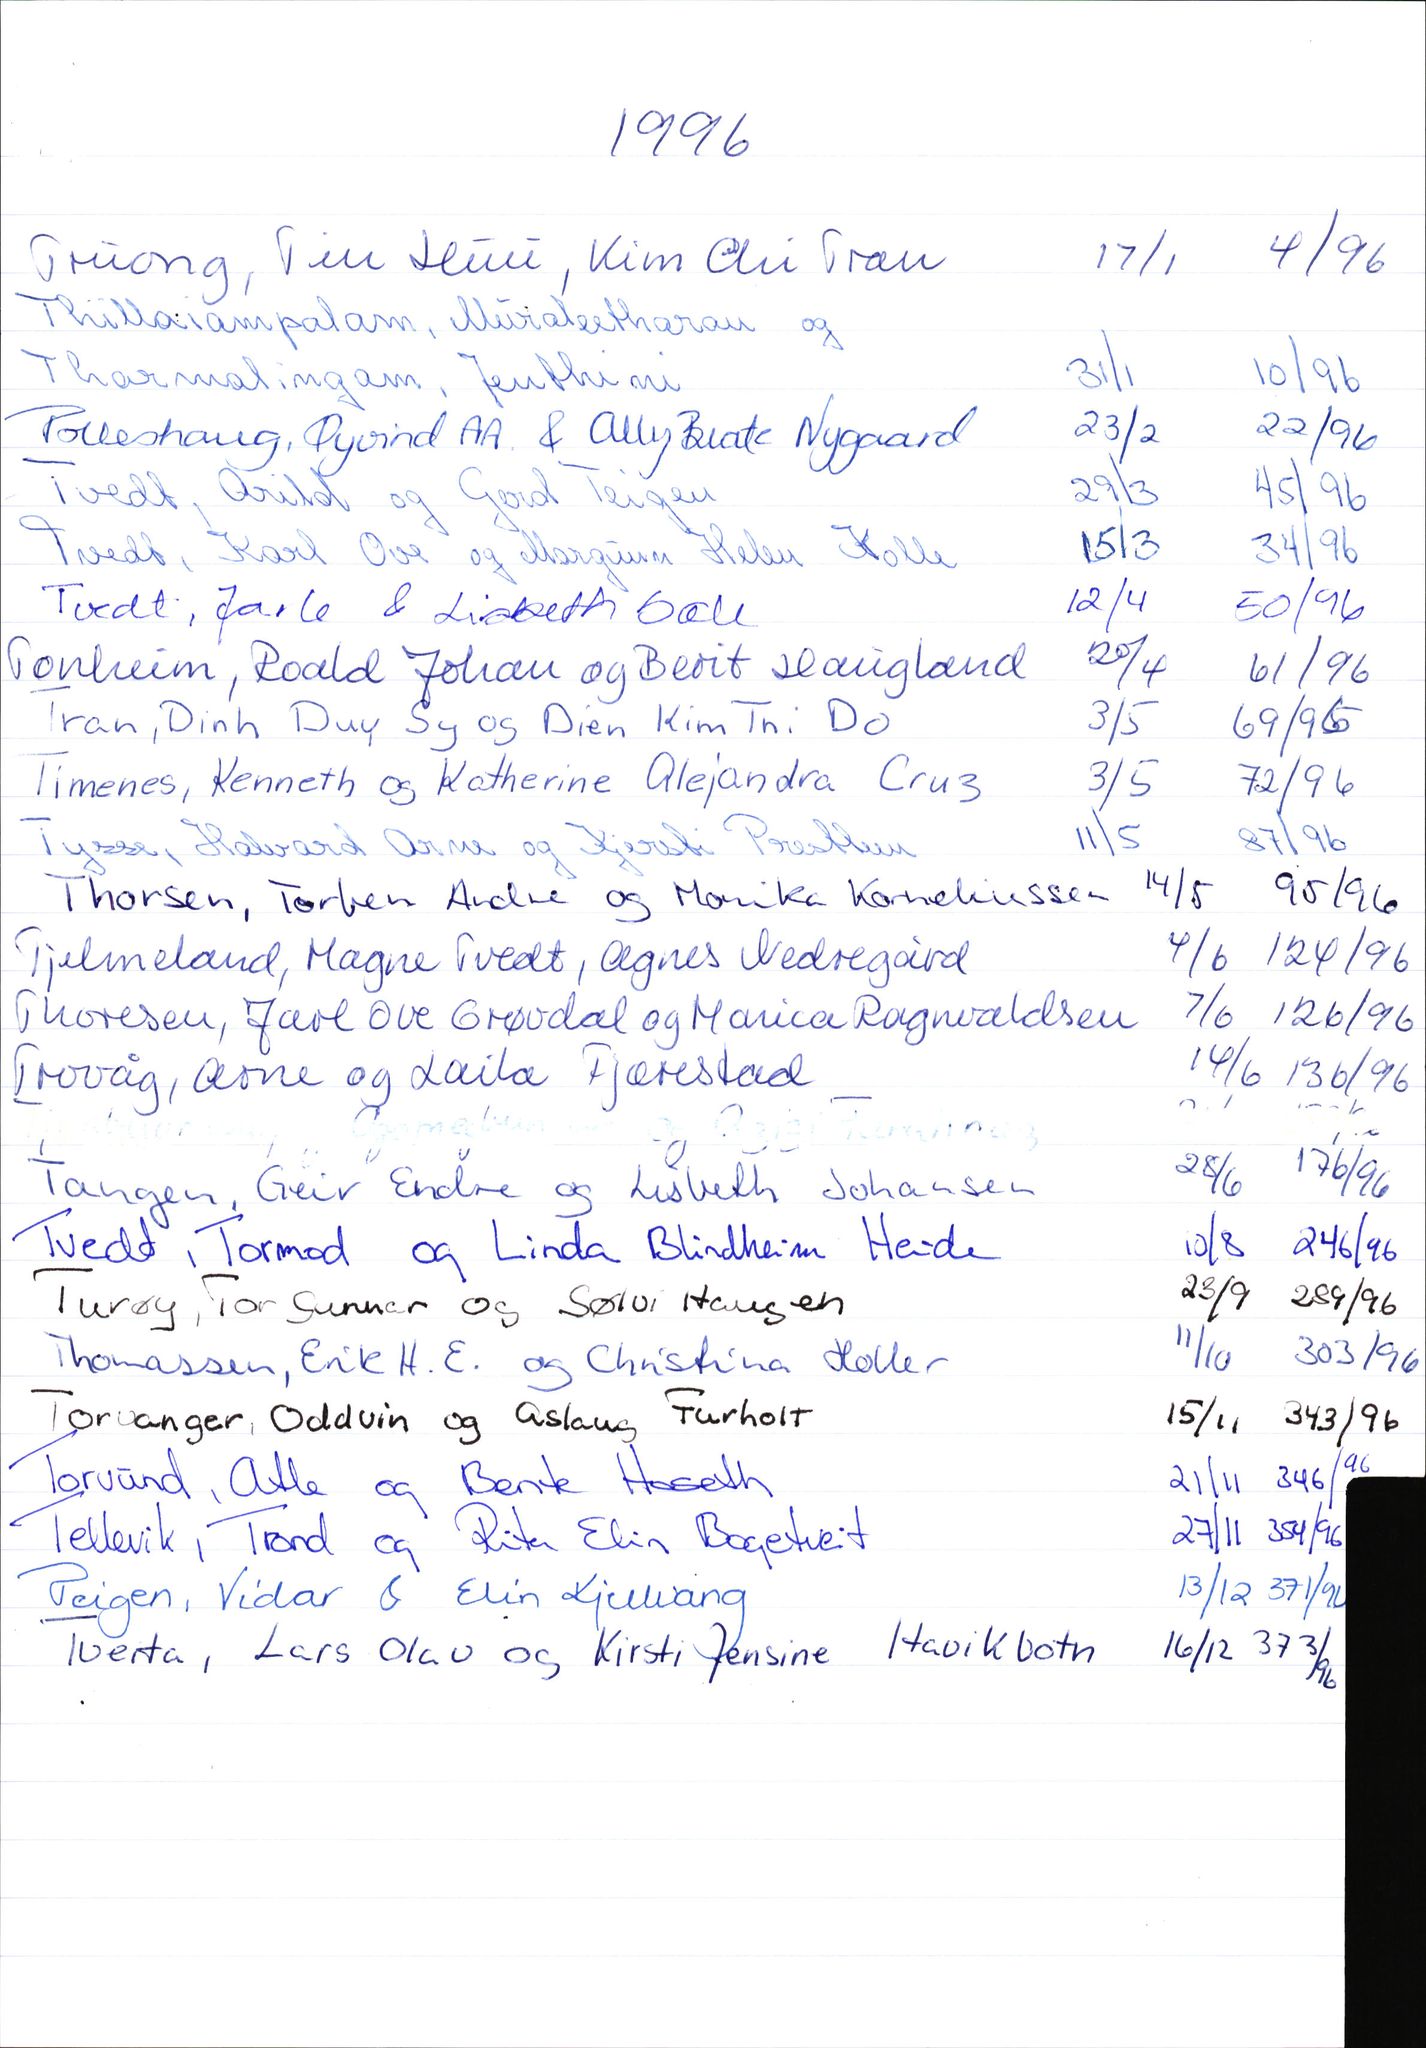 1996
Truong, Tin Huu, Kim Chi Tran 17/1 4/96
Thillaiampalam, Muraleetharan og
Tharmalingam, Jenthini 31/1 10/96
Tolleshaug, Øyvind AA. & Ally Beate Nygaard 23/2 22/96
Tvedt, Arild og Gerd Teigen 29/3 45/96
Tvedt, Karl Ove og Margunn Helen Holle 15/3 34/96
Tvedt, Jarle & Lisbeth 12/4 50/96
Tonheim, Roald Johan og Berit Haugland 20/4 61/96
Tran, Dinh Duy Sy og Dien Kim Thi Do 3/5 69/96
Timenes, Kenneth og Katherine Alejandra Cruz 3/5 72/96
Tysse, Halvard Arne og Kjersti 11/5 87/96
Thorsen, Torben Andre og Monika Korneliussen 14/5 95/96
Tjelmeland, Magne Tvedt, Agnes Nedregård 4/6 124/96
Thoresen, Jarl Ove Grøvdal og Marica Ragnvaldsen 7/6 126/96
Trovåg, Arne og Laila Fjærestad 14/6 136/96
og
Tangen, Geir Endre og Lisbeth Johansen 28/6 176/96
Tvedt, Tormod og Linda Blindheim Heide 10/8 246/96
Turøy, Tor Gunnar og Sølvi Haugen 23/9 289/96
Thomassen, Erik H. E. og Christina Holler 11/10 303/96
Torvanger, Oddvin og Aslaug Furholt 15/11 343/96
Torvund, Atle og Bente Hoseth 21/11 346/96
Tellevik, Trond og Rita Elin Bogetveit 27/11 354/96
Teigen, Vidar & Elin Kjellvang 13/12 371/96
Tverta, Lars Olav og Kirsti Jensine Havikbotn 16/12 373/96